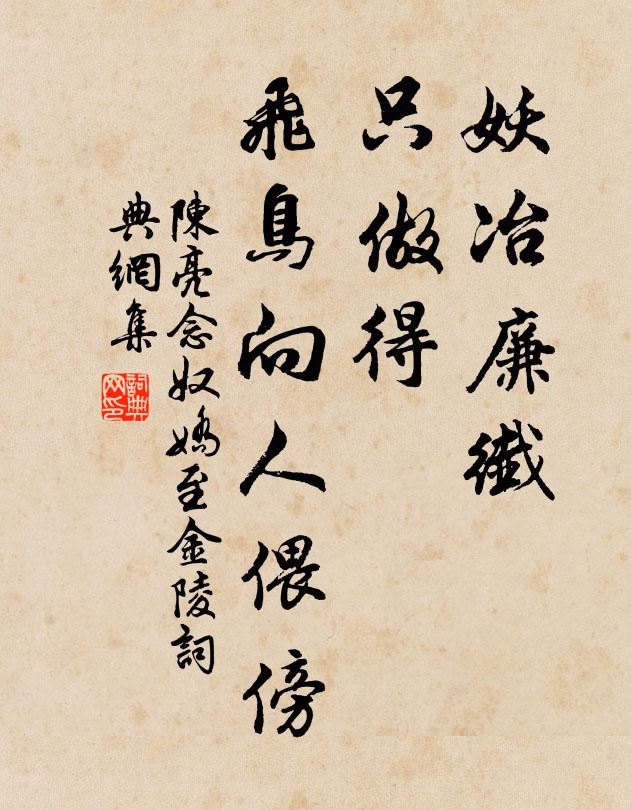 妖冶廉纖
只做得
飛鳥向人偎傍
陳亮念奴嬌至金陵詞
典網集
詞典网印